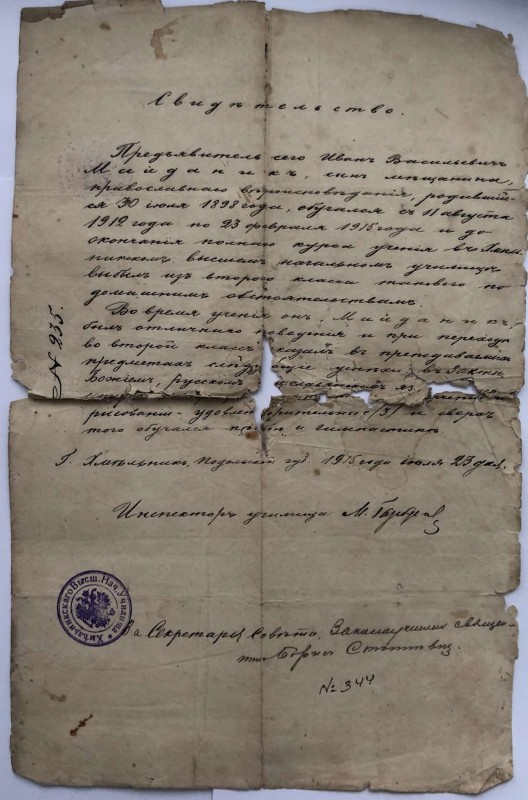 Свидѣтельство.
Предъявитель сего Иванъ Васильевичъ
Майданикъ, сынъ мѣщанина,
православнаго вѣроисповѣданія, родивший-
ся 30 іюля 1898 года, обучался съ 11 августа
1912 года по 23 февраля 1915 года и до
окончанія полнаго курса ученія въ Хмѣль-
никскомъ высшемъ начальномъ училищѣ
выбылъ изъ второго класса такового по
домашнимъ обстоятельствамъ.
Во время ученія онъ, Майданикъ,
былъ отличнаго поведенія и при переходѣ
во второй классъ оказалъ въ преподаваемыхъ
предметахъ успѣхи: въ Законѣ
Божіемъ, русскомъ
рисованіи - удовлетворительные (3) и сверхъ
того обучался пѣнію и гимнастикѣ
Г. Хмѣльникъ, Подольской губ. 1915 года іюля 23 дня.
Инспекторъ училища М.
За Секретаря Совѣта, Законоучитель священ-
никъ
№ 344
№ 235.
Хмѣльникскаго Высш. Нач. Училища